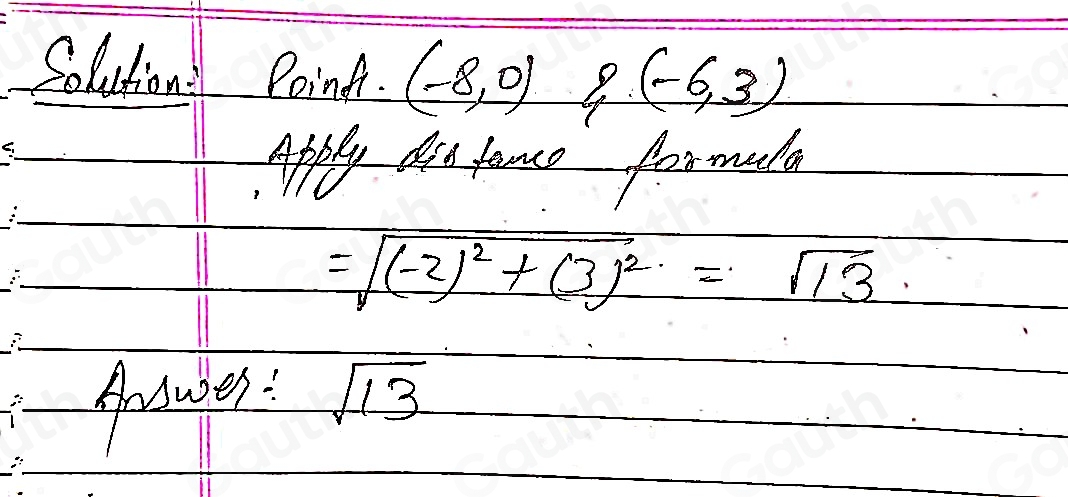 Solution:- Point. (-8,0) & (-6,3)
Apply distance formula
= √((-2)² + (3)²) = √13.
Answer: √13